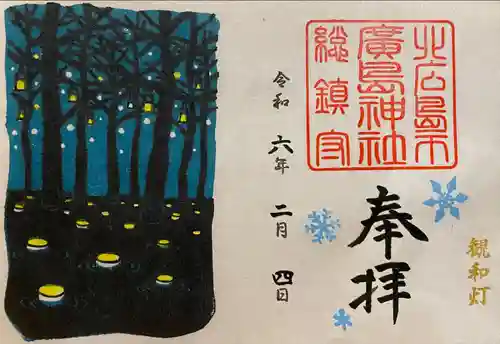 北広島市
廣島神社
総鎮守
奉拝
観和灯
令和六年二月四日